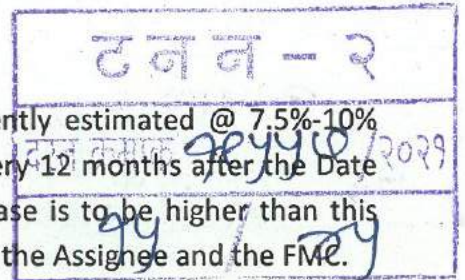 टनन - २
ntly estimated @ 7.5%-10%
दस्त क्रमांक /२०२१
ery 12 months after the Date
ase is to be higher than this
the Assignee and the FMC.